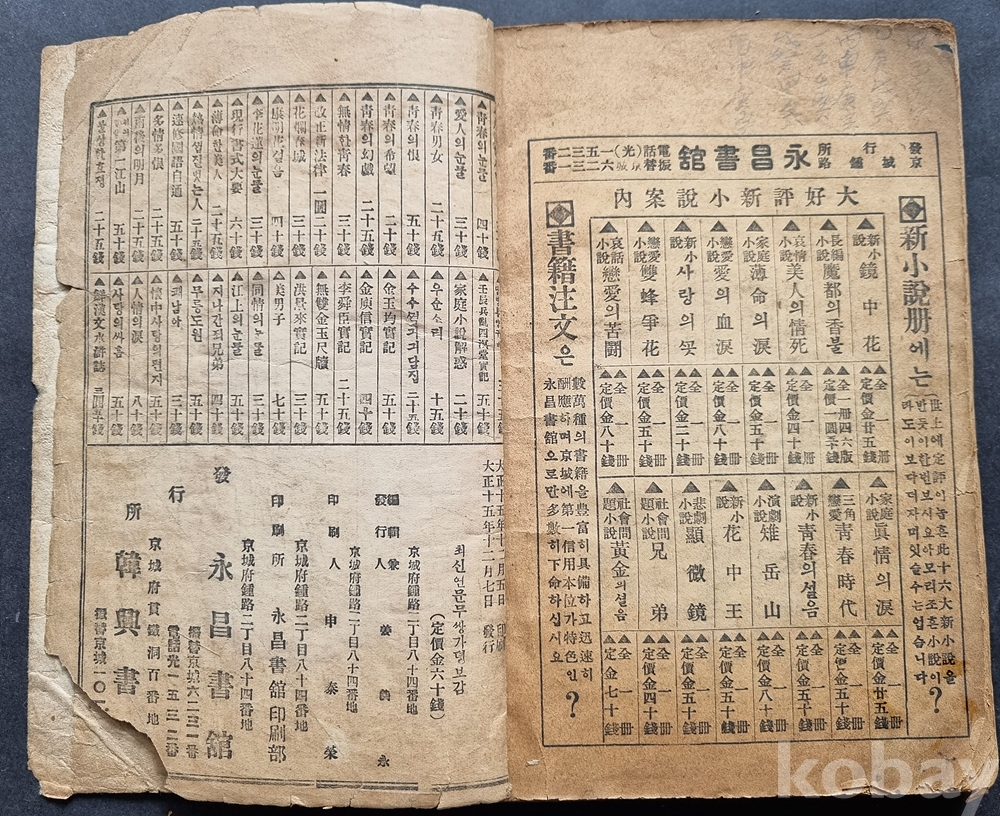 發行所
京城鍾路
永昌書館
電話(光)一五三二番
振替京城六二三一番
大好評新小說案內
新小說册에는
世上에定評이놉흔此十六大新小說을
반듯이한번보시요아모리조흔小說이
라도이보다더자미잇슬수는업슴니다
?
新小說 鏡中花 全一册 定價金廿五錢
長編小說 魔都의香불 全一册四六版
哀情小說 美人의情死 全一册 定價金四十錢
家庭小說 薄命의淚 全一册 定價金五十錢
戀愛小說 愛의血淚 全一册 定價金八十錢
新小說 사랑의꿋 全一册 定價金三十錢
戀愛小說 雙蜂爭花 全一册 定價金五十錢
哀話小說 戀愛의苦鬪 全一册 定價金八十錢
家庭小說 眞情의淚 全一册 定價金廿五錢
三角戀愛 靑春時代 全一册 定價金五十錢
新小說 靑春의설음 全一册
演劇小說 雉岳山 全一册 定價金八十錢
新小說 花中王 全一册
悲劇小說 顯微鏡 全一册
社會問題小說 兄弟 全一册 定價金四十錢
社會問題小說 黃金의설음 全一册 定價金七十錢
書籍注文은
數萬種의書籍을豊富히具備하고迅速히
酬應하며京城에第一信用本位가特色인
永昌書館으로만多數히下命하십시요
?
靑春의눈물 四十錢
愛人의눈물 三十錢
靑春男女 二十五錢
靑春의恨 五十錢
靑春의希望 二十錢
靑春의幻戲 二十五錢
無情한靑春 三十錢
改正新法律 一圓二十錢
花爛春城 三十錢
康明花설음 四十錢
李花蓮의눈물 三十錢
現行書式大要 六十錢
薄命한美人 二十五錢
二十五錢
速修國語自通 五十錢
多情多恨 二十五錢
南橋의明月 二十五錢
第一江山 二十五錢
二十五錢
五十錢
家庭小說解惑 二十錢
우순소리 十五錢
金玉均實記 五十錢
金庾信實記 四十錢
李舜臣實記 二十五錢
無雙金玉尺牘 五十錢
洪景來實記 三十錢
美男子 七十錢
同情의눈물 三十錢
江上의눈물 五十錢
지나간죄兄弟 四十錢
무릉도원 五十錢
三十錢
懷中사랑의편지 八十錢
人情의淚 五十錢
사랑의싸홈 五十錢
鮮漢文水滸誌
大正十五年十一月五日 印刷
大正十五年十一月七日 發行
최신언문무쌍가뎡보감
(定價金六十錢)
京城府鍾路二丁目八十四番地
編輯兼發行人 姜義永
京城府鍾路二丁目八十四番地
印刷人 申泰榮
京城府鍾路二丁目八十四番地
印刷所 永昌書館印刷部
京城府鍾路二丁目八十四番地
發行所 永昌書館
振替京城六二三一番
電話光一五三二番
京城府貫鐵洞百番地
韓興書
振替京城一〇
kobay